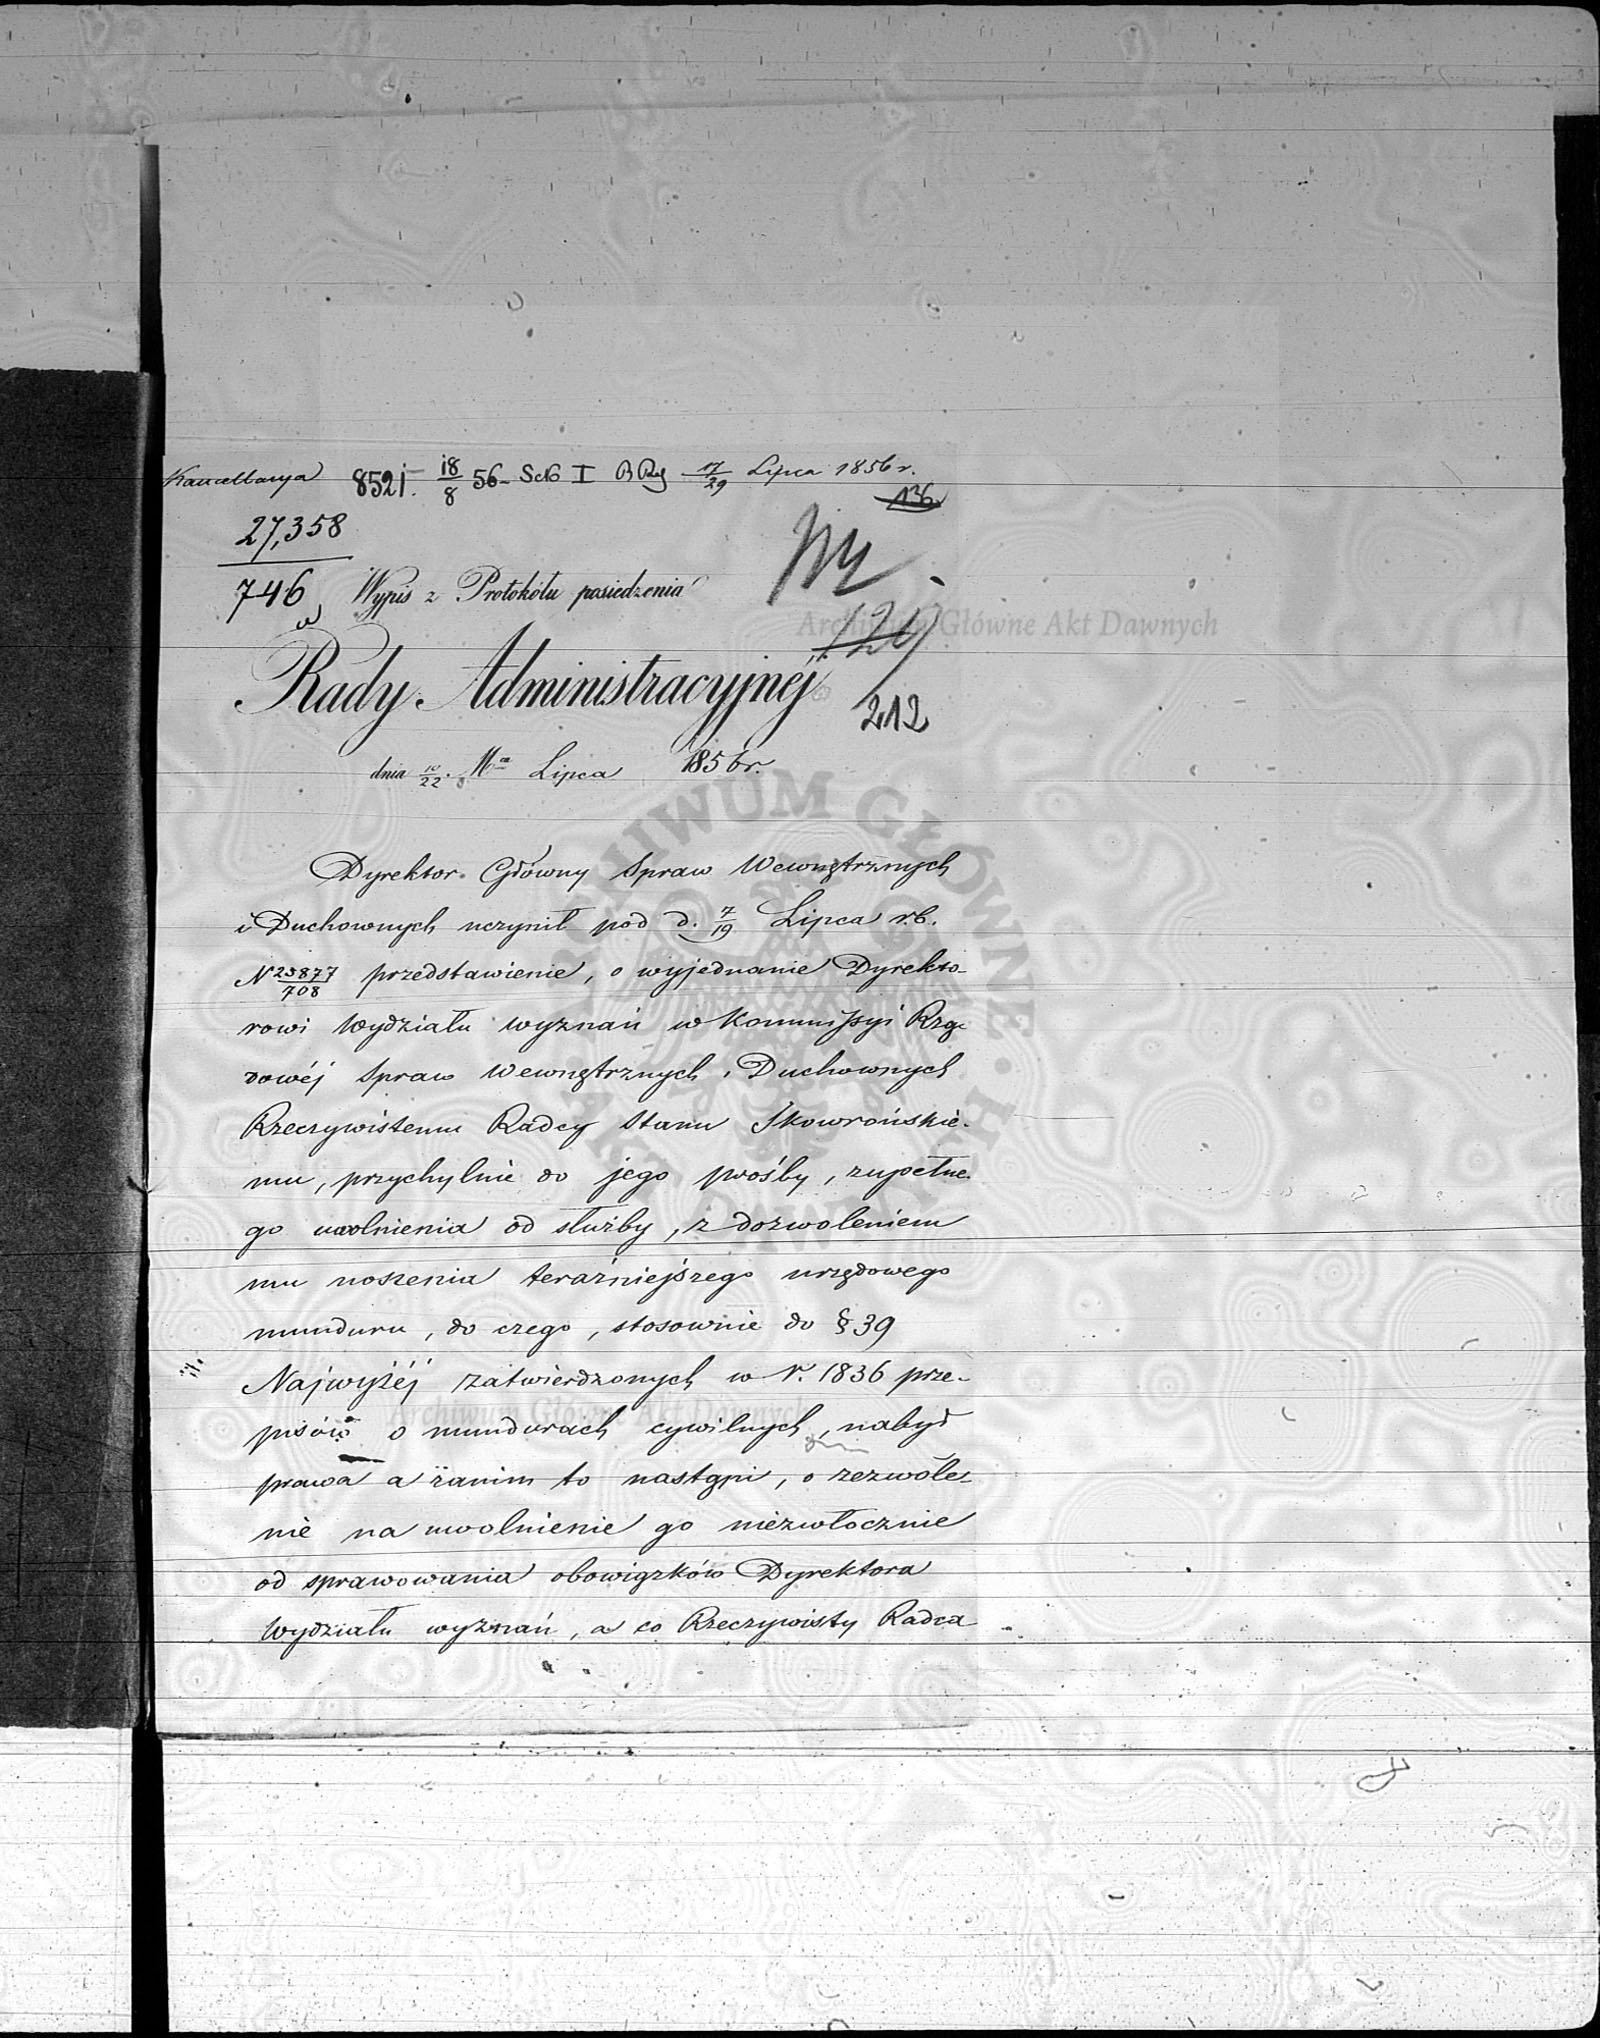 Kancellarya 8521. 18/8 56 - Sck I B Rg 17/29 Lipca 1856 r.
136
27,358
746
Wypis z Protokółu posiedzenia
129
Rady Administracyjnéj
212
dnia 10/22. Mca Lipca 1856 r.
Dyrektor Główny Spraw Wewnętrznych
i Duchownych uczynił pod d. 7/19 Lipca r.b.
N 25877/708 przedstawienie, o wyjednanie Dyrekto-
rowi Wydziału wyznań w Kommissyi Rzą-
dowéj Spraw Wewnętrznych i Duchownych
Rzeczywistemu Radcy Stanu Skowrońskie-
mu, przychylnie do jego prośby, zupełne-
go uwolnienia od służby, z dozwoleniem
mu noszenia teraźniejszego urzędowego
munduru, do czego, stosownie do § 39
Najwyżéj zatwierdzonych w r. 1836 prze-
pisów o mundurach cywilnych, nabył
prawa a zanim to nastąpi, o zezwole-
nie na uwolnienie go niezwłocznie
od sprawowania obowiązków Dyrektora
Wydziału wyznań, a co Rzeczywisty Radca
Archiwum Główne Akt Dawnych
ARCHIWUM GŁÓWNE AKT DAWNYCH
Archiwum Główne Akt Dawnych